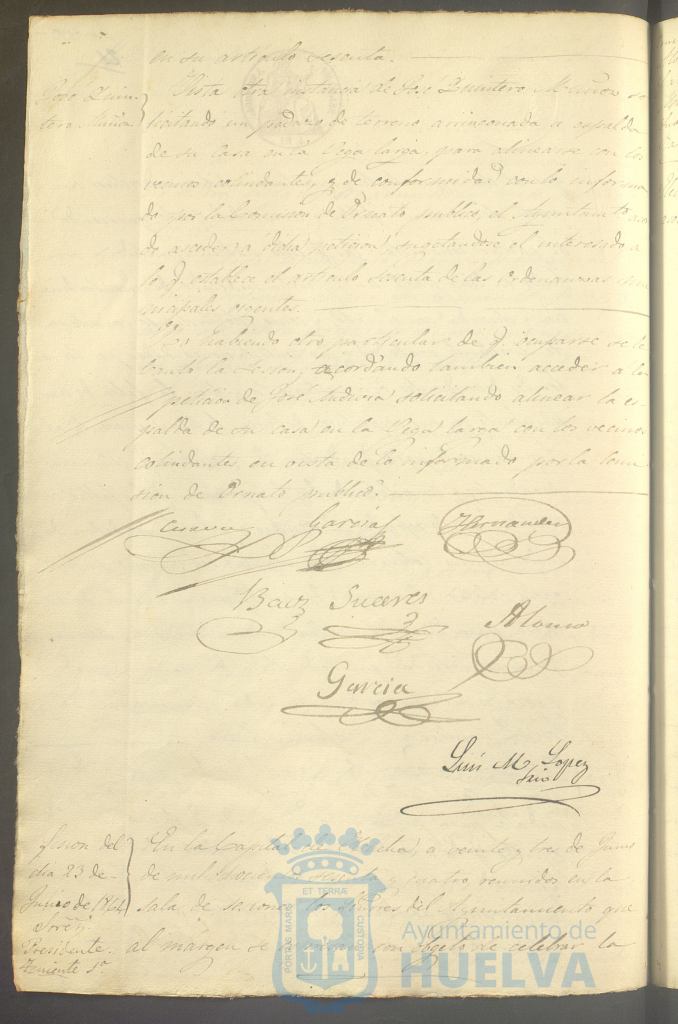 en su articulo sesenta.
José Quin-
tero Muñoz
Vista otra instancia de José Quintero Muñoz so
licitando un pedazo de terreno arrinconado a espalda
de su casa en la Vega larga, para alinearse con los
vecinos colindantes, y de conformidad con lo informa
do por la Comision de Ornato publico, el Ayuntamto acor
dó acceder a dicha peticion, sugetandose el interesado a
lo q. establece el articulo sesenta de las ordenanzas mu
nicipales vigentes.
No habiendo otro particular de q. ocuparse se le
vantó la sesion, acordando tambien acceder a la
peticion de José solicitando alinear la es
palda de su casa en la Vega larga con los vecinos
colindantes en vista de lo informado por la Comi
sion de Ornato publico.
Garcia
Hernandez
Baez
Suceres
Alonso
Garcia
Luis M. Lopez
Srio
Sesion del
dia 23 de
Junio de 1864
Sres.
Presidente.
Teniente 1º
En la Capital de Huelva, a veinte y tres de Junio
de mil ochocientos sesenta y cuatro reunidos en la
sala de sesiones los Señores del Ayuntamiento que
al márgen se espresan con objeto de celebrar la
PORTUS MARIS
ET TERRÆ
CUSTODIA
Ayuntamiento de
HUELVA